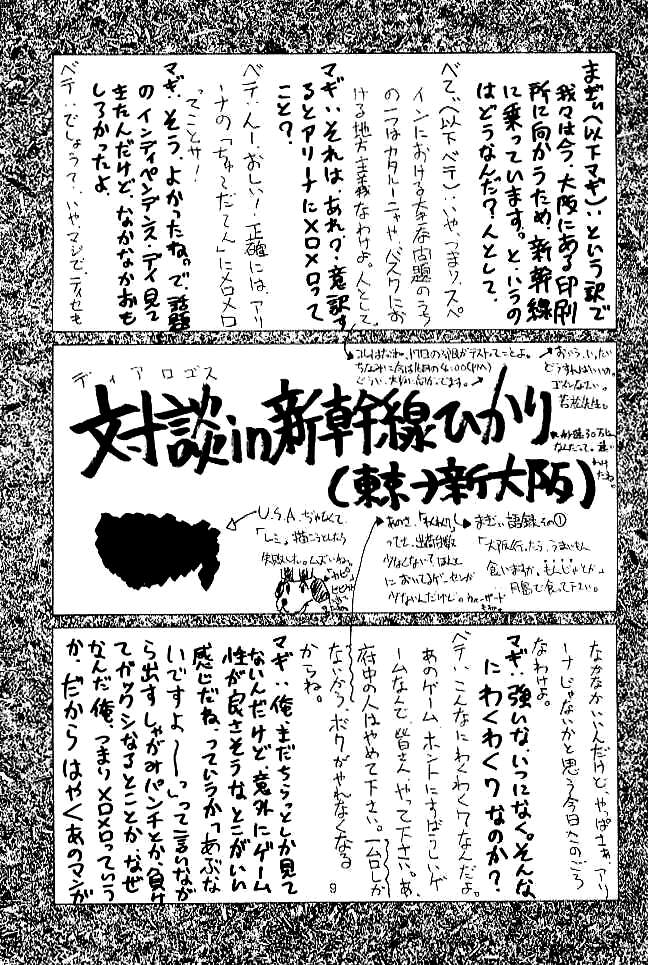 まざい(以下マギ):という訳で
我々は今、大阪にある印刷
所に向かうため、新幹線
に乗っています。と、いうの
はどうなんだ?人として。
べて(以下ベテ):いや、つまり、スペ
インにおける
の一つはカタルーニャや、バスクにお
ける地方主義なわけよ。人として
マギ:それは、あれか?意訳す
るとアリーナにメロメロって
こと?
ベテ:んー、おしい!正確には、アリ
ーナの「ちゅてだてん」にメロメロ
ってことサ!
マギ:そう、よかったね。で、話題
のインディペンデンス・デイ見て
きたんだけど、なかなかおも
しろかったよ。
ベテ:でしょうて、いやマジで、ディセも
ディアロゴス
対談in新幹線ひかり
(東京→新大阪)
おいう、いったい
どうすんはいいの。
ゴメンなさい。
U.S.A.ぢゃなくて、
「レミ」描こうとしたら
失敗した。ムズいね。
あのさ、「わくわく7」
ってさ、出荷台数
少なくてほんと
においてるゲーセンが
少ないんだけど
まざい語録その①
「大阪行ったら、うまいもん
食いますか。もんじゃとか」
月島で食って下さい。
なかなかいいんだけど、やっぱさあ、アリ
ーナじゃないかと思う今日このごろ
なわけよ。
マギ:強いな、いつになく。そんな
にわくわく7なのか?
ベテ:こんなにわくわく7なんだよ。
あのゲーム、ホントにすばらしいゲ
ームなんで、皆さん、やって下さい。あ、
府中の人はやめて下さい。一台しか
ないから、ボクがやれなくなる
からね。
マギ:俺、まだちらっとしか見て
ないんだけど、意外にゲーム
性が良さそうな、とこがいい
感じだね。っていうか「あぶな
いですよ〜〜っ」って言いなが
ら出すしゃがみパンチとか、負け
てガックシなるとことか、なぜ
なんだ俺、つまりメロメロっていう
か、だからはやくあのマンガ
9